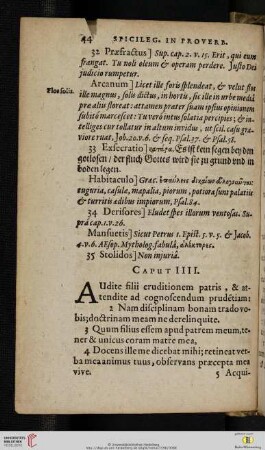 44 SPICILEG. IN PROVERB.
32 Præfractus] Sup. cap. 2. v. 15. Erit, qui eum
frangat. Tu noli oleum & operam perdere. Justo Dei
judicio rumpetur.
Arcanum] Licet ille foris splendeat, & velut flos
Flos solis.
ille magnus, solis dictus, in hortis, sic ille in urbe media
præ aliis floreat: attamen præter suam ipsius opinionem
subitò marcescet: Tu verò intus solatia percipies; & in-
telliges eur tollatur in altum invidus, ut scil. casu gra-
viore ruat. Job. 20. v. 6. & seq. Psal. 37. & Psal. 58.
33 Exsecratio] Es ist kein segen bey den
gotlosen / der fluch Gottes wird sie zu grund und in
boden legen.
Habitaculo] Græc.
tuguria, casulæ, mapalia, piorum, potiora sunt palatiis
& turritis ædibus impiorum, Psal. 84.
34 Derisores] Eludet spes illorum ventosas. Su-
prà cap. 1. v. 26.
Mansuetis] Sicut Petrus 1. Epist. 5. v. 5. & Jacob.
4. v. 6. AEsop. Mytholog. fabulâ,
35 Stolidos] Non injuriâ.
CAPUT IIII.
AUdite filii eruditionem patris, & at-
tendite ad cognoscendum prudẽtiam:
2 Nam disciplinam bonam trado vo-
bis; doctrinam meam ne derelinquite.
3 Quum filius essem apud patrem meum, te-
ner & unicus coram matre mea,
4 Docens ille me dicebat mihi; retineat ver-
ba mea animus tuus, observans præcepta mea
vive. 5 Acqui-